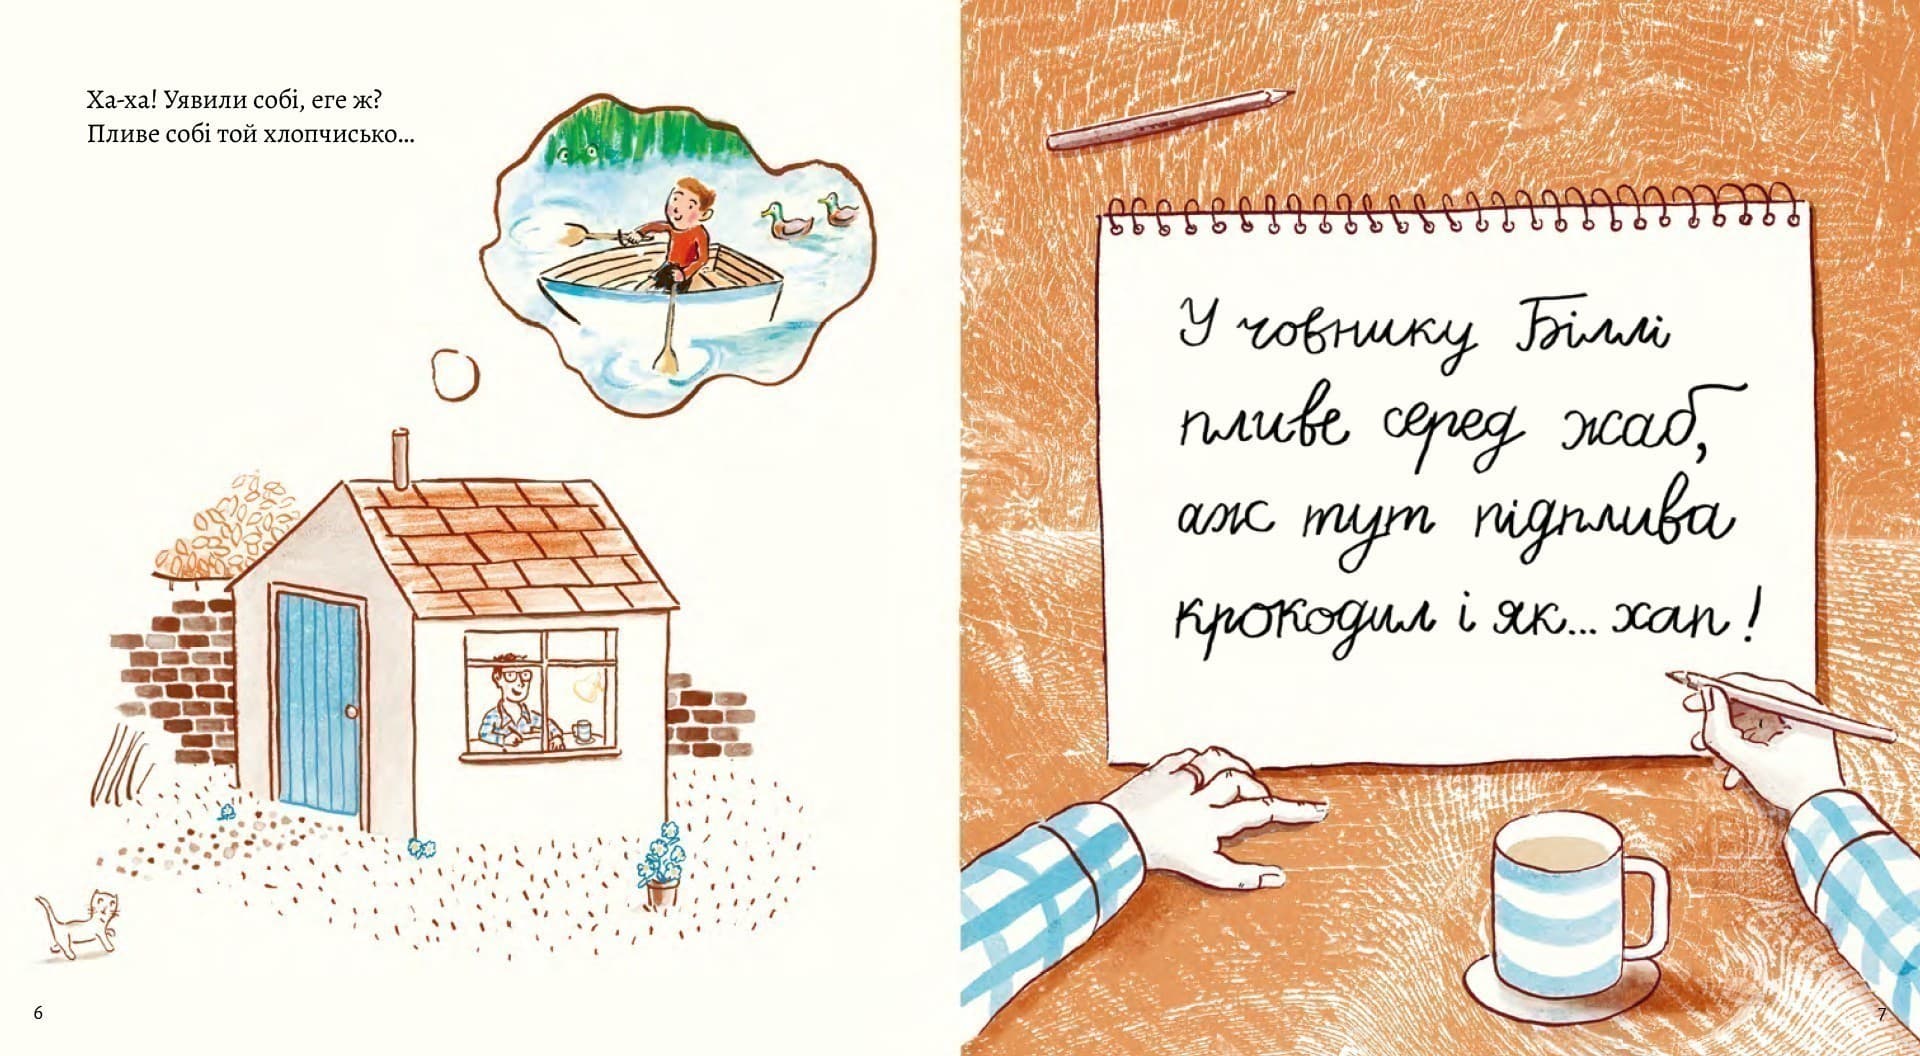 Ха-ха! Уявили собі, еге ж?
Пливе собі той хлопчисько...
У човнику Біллі
пливе серед жаб,
аж тут підплива
крокодил і як... хап!
6
7